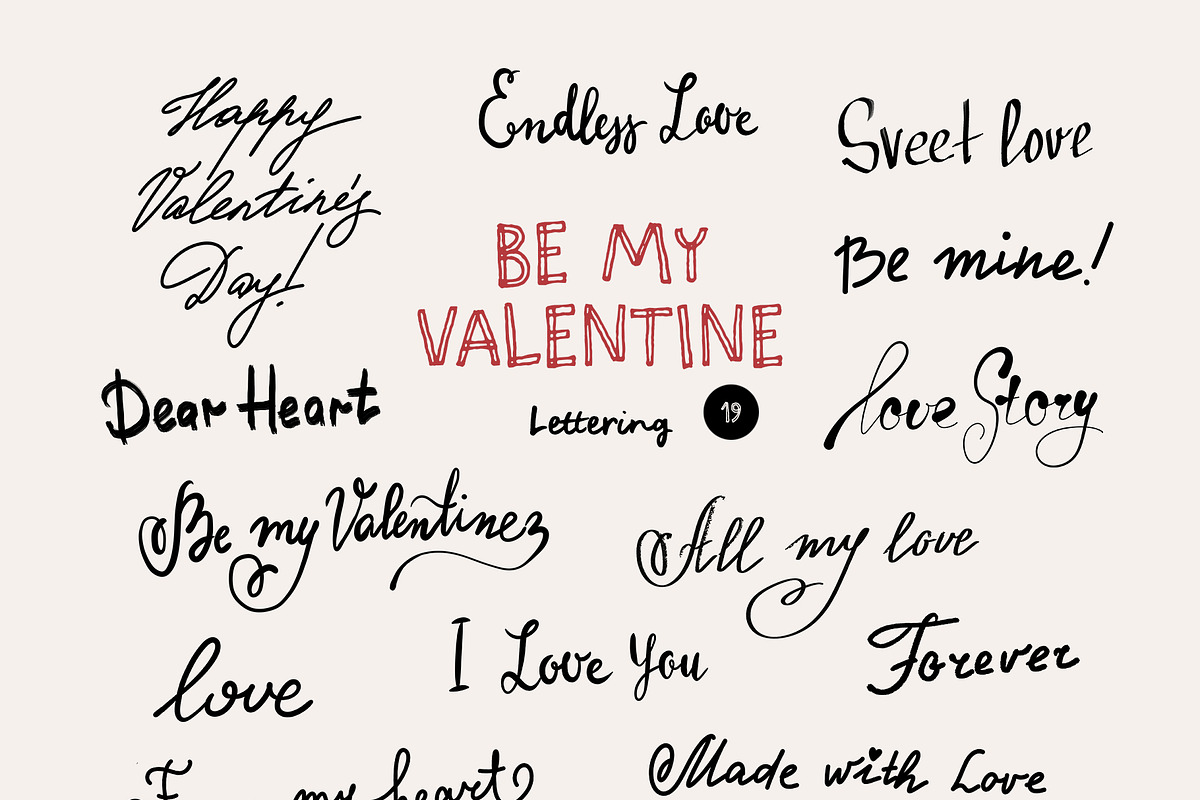 Happy
Valentine's
Day!
Endless Love
Sveet love
BE MY
VALENTINE
Be mine!
Dear Heart
Lettering 19
love Story
Be my Valentinez
All my love
love
I Love You
Forever
my heart
Made with Love